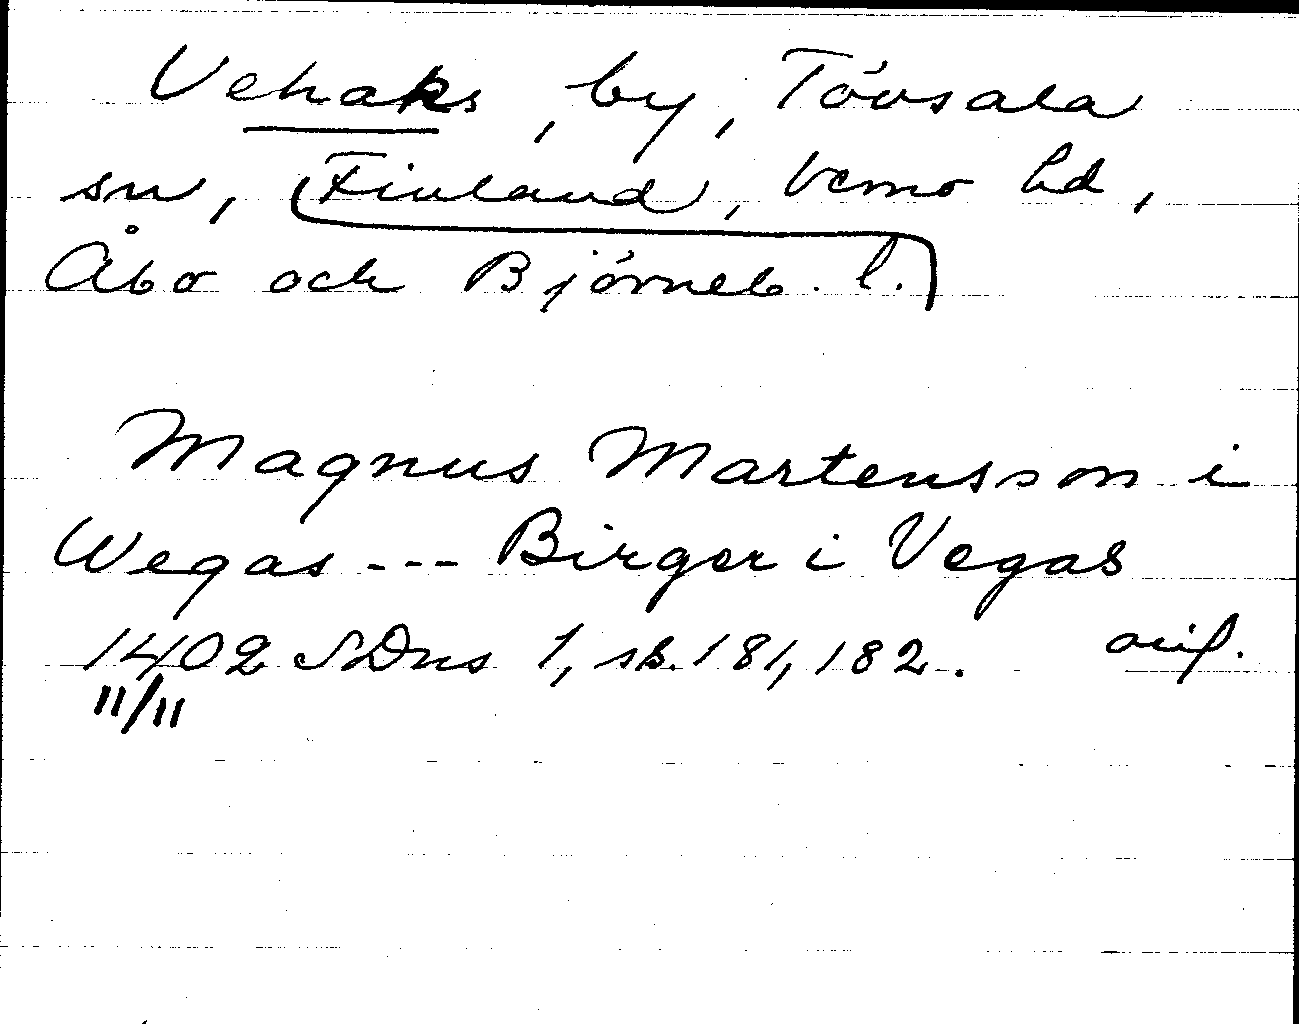 Vehaks, by, Tövsala
sn, Finland, Vemo hd,
Åbo och Björneb. l.
Magnus Martensson i
Wegas --- Birger i Vegas
1402 SDns 1, sb. 181, 182. orig.
11/11